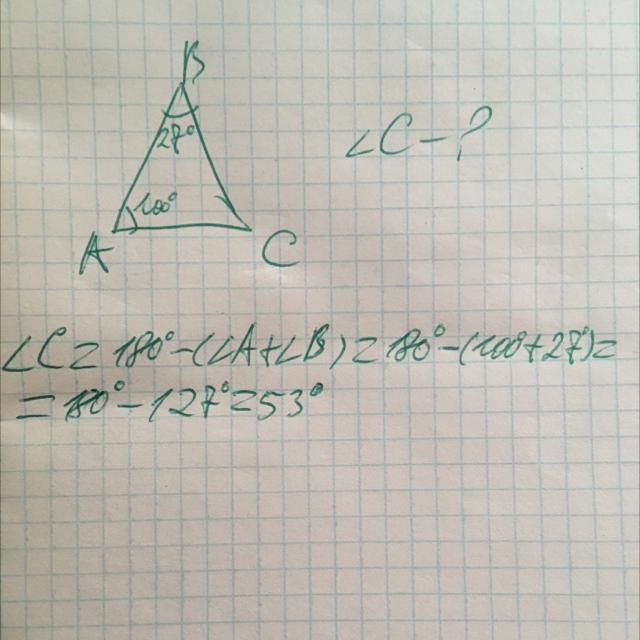 B
27°
∠C - ?
100°
A
C
∠C = 180° - (∠A + ∠B) = 180° - (100° + 27°) =
= 180° - 127° = 53°